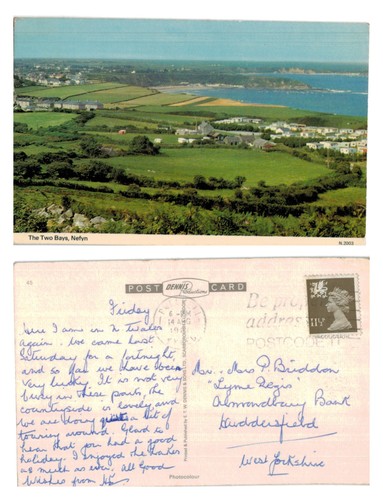 The Two Bays, Nefyn
N.2003
45
POST DENNIS Productions CARD
Friday
Here I am in N Wales
again. We came last
Saturday for a fortnight,
and so far we have been
very lucky. It is not very
busy in these parts, the
countryside is lovely and
we are doing a bit of
touring around. Glad to
hear that you had a good
holiday. I enjoyed the
as much as ever. All Good
Wishes from
Printed & Published by E.T.W. DENNIS & SONS LTD., SCARBOROUGH
Photocolour
6 - PM
Be
address
POSTCODE
Mr. Mrs P. Briddon
"Lyme Regis"
Almondbury Bank
Huddersfield
West Yorkshire